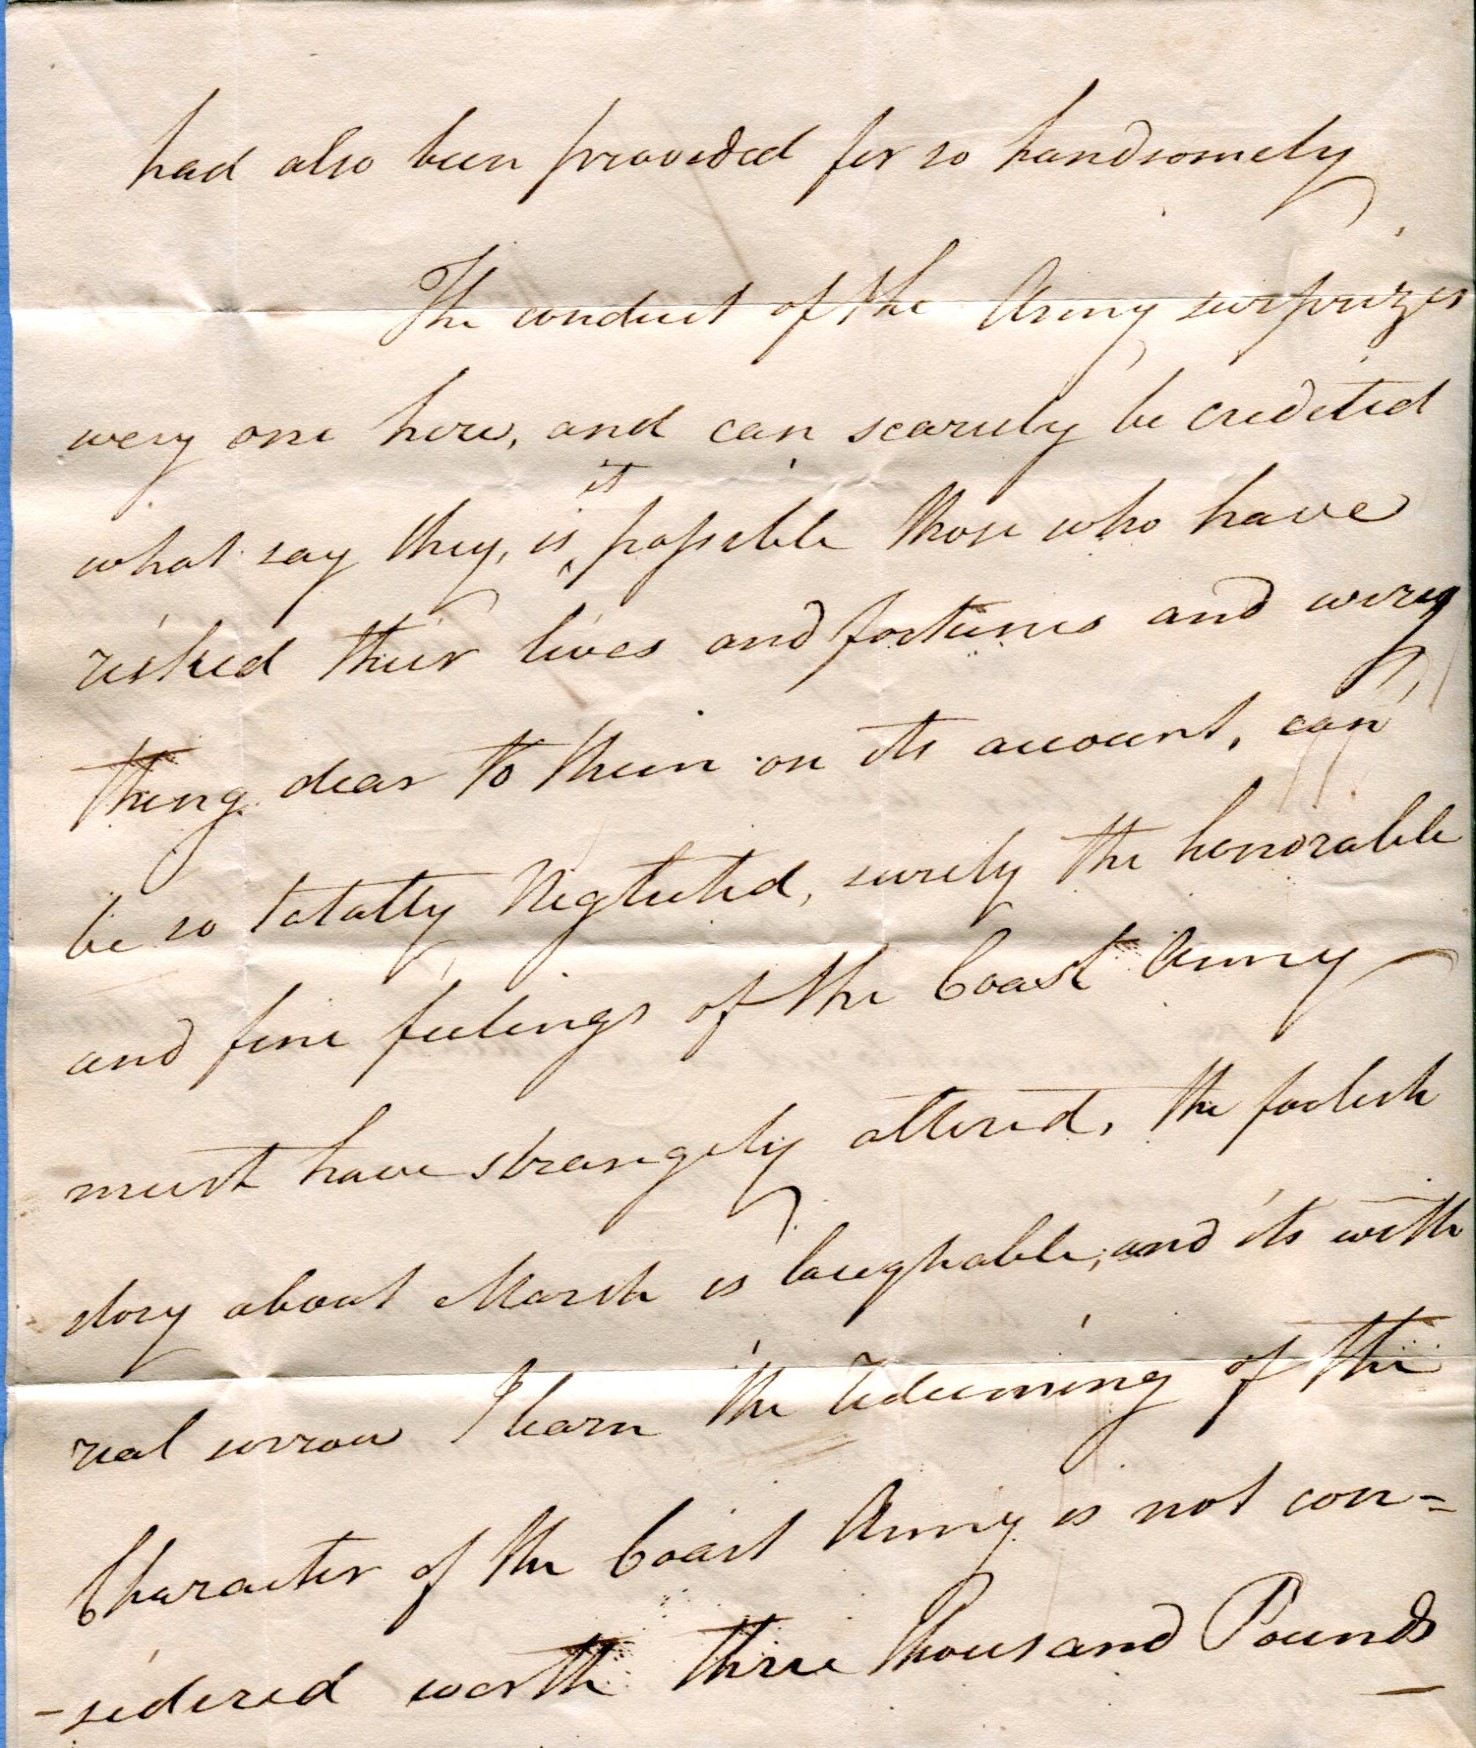 had also been provided for so handsomely
The conduct of the Army surprizes
every one here, and can scarcely be credited
what say they, is it possible those who have
risked their lives and fortunes and every
thing dear to them on its account, can
be so totally Neglected, surely the honorable
and fine feelings of the Coast Army
must have strangely altered, the foolish
story about Marsh is laughable, and its with
real sorrow I learn the redeeming of the
Character of the Coast Army is not con=
-sidered worth three thousand Pounds